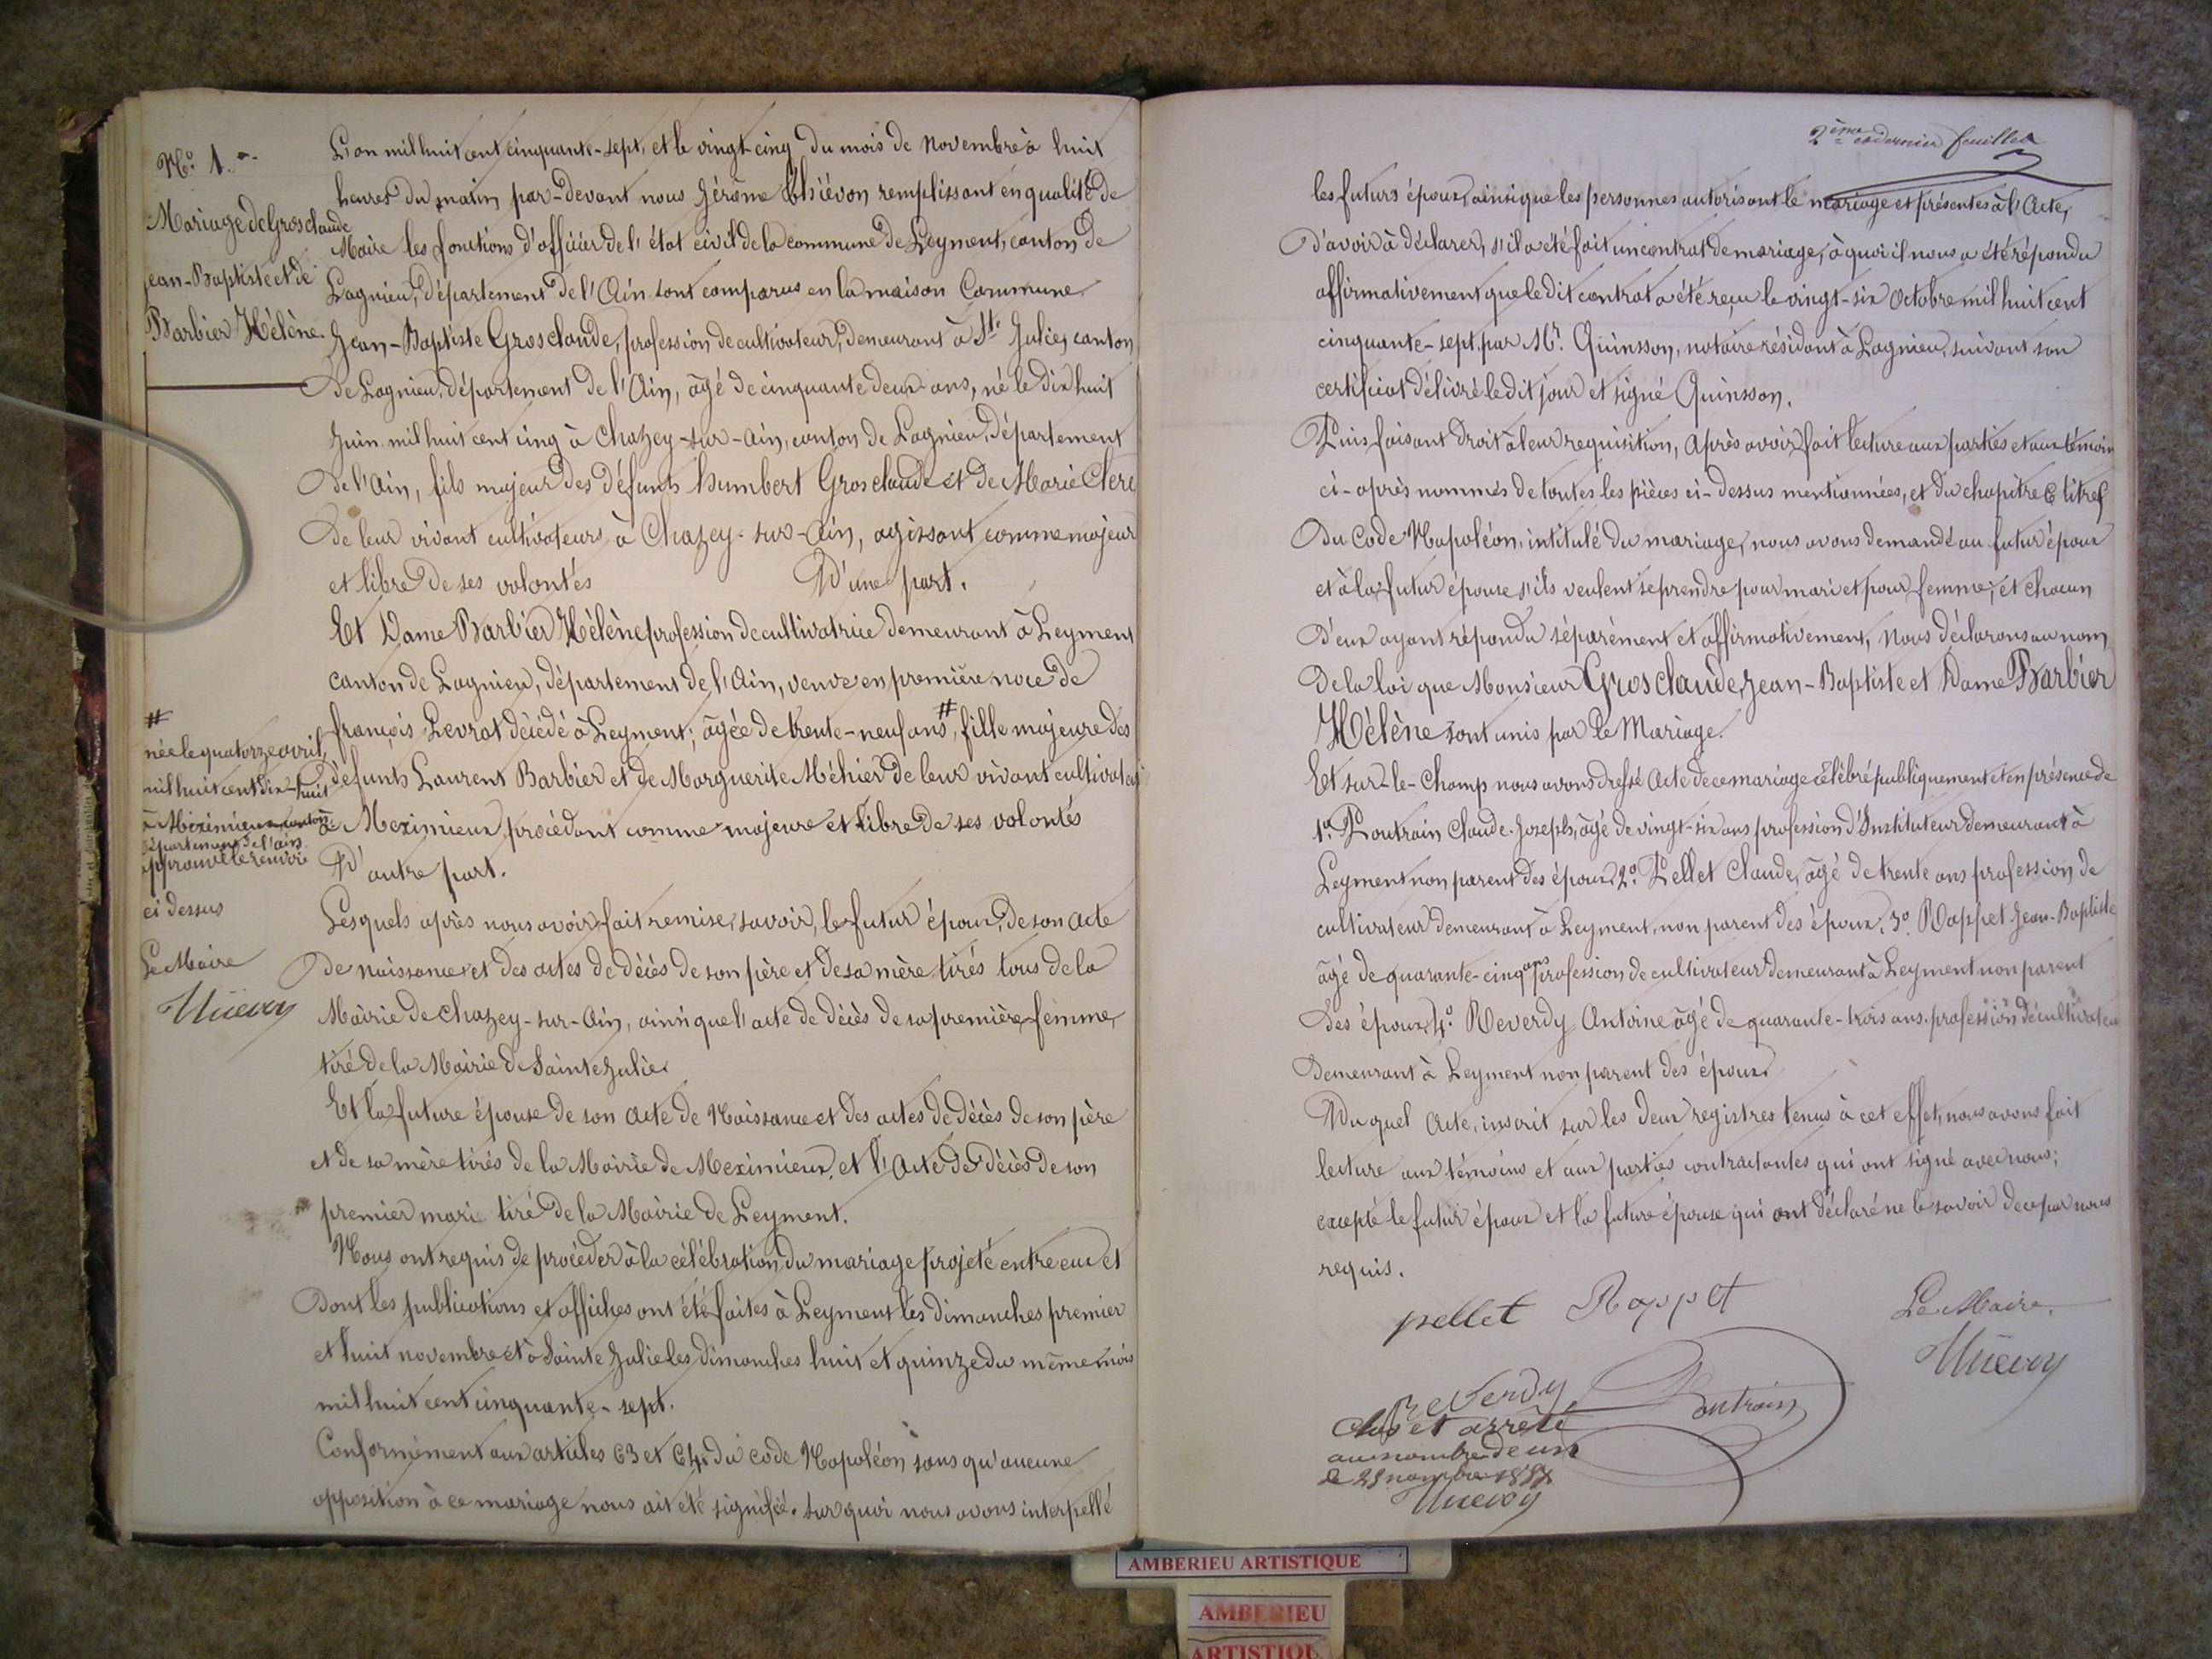 N.o 1.
Mariage de Grosclaude
jean-Baptiste et de
Barbier Hélène.
L'an mil huit cent cinquante-sept, et le vingt-cinq du mois de Novembre à huit
heures du matin par-devant nous Jérôme Thiévon remplissant en qualité de
Maire les fonctions d'officier de l'état civil de la commune de Leyment, canton de
Lagnieu, département de l'Ain sont comparus en la maison Commune
Jean-Baptiste Grosclaude, profession de cultivateur, demeurant à Ste Julie, canton
de Lagnieu, département de l'Ain, âgé de cinquante deux ans, né le dix huit
Juin mil huit cent cinq à Chazey-sur-Ain, canton de Lagnieu, département
de l'Ain, fils majeur des défunts humbert Grosclaude et de Marie Clerc
de leur vivant cultivateurs à Chazey-sur-Ain, agissant comme majeur
et libre de ses volontés D'une part.
Et Dame Barbier Hélène profession de cultivatrice demeurant à Leyment
canton de Lagnieu, département de l'Ain, veuve en première noce de
françois Levrat décédé à Leyment; âgée de trente-neuf ans #, fille majeure des
défunts Laurent Barbier et de Marguerite Méhier de leur vivant cultivateurs
à Meximieux, procédant comme majeure et libre de ses volontés
D'autre part.
#
née le quatorze avril,
mil huit cent dix-huit
à Meximieux, canton
département de l'ain.
approuvé le renvoi
ci dessus
Le Maire
Thiévon
Lesquels après nous avoir fait remise, savoir, le futur époux, de son acte
de naissance et des actes de décès de son père et de sa mère tirés tous de la
Mairie de Chazey-sur-Ain, ainsi que l'acte de décès de sa première femme,
tiré de la Mairie de Sainte Julie.
Et la future épouse de son acte de Naissance et des actes de décès de son père
et de sa mère tirés de la Mairie de Meximieux, et l'Acte de décès de son
premier mari tiré de la Mairie de Leyment.
Nous ont requis de procéder à la célébration du mariage projeté entre eux et
dont les publications et affiches ont été faites à Leyment les dimanches premier
et huit novembre et à Sainte Julie les dimanches huit et quinze du même mois
mil huit cent cinquante-sept.
Conformément aux articles 63 et 64 du code Napoléon sans qu'aucune
opposition à ce mariage nous ait été signifiée. sur quoi nous avons interpellé
2ème et dernier feuillet
les futurs époux, ainsi que les personnes autorisant le mariage et présentes à l'Acte,
d'avoir à déclarer, s'il a été fait un contrat de mariage, à quoi il nous a été répondu
affirmativement que le dit contrat a été reçu le vingt-six Octobre mil huit cent
cinquante-sept, par Mr. Quinsson, notaire résidant à Lagnieu, suivant son
certificat délivré le dit jour et signé Quinsson.
Puis faisant droit à leur requisition, après avoir fait lecture aux parties et aux témoins
ci-après nommés de toutes les pièces ci-dessus mentionnées, et du chapitre 6 titre 5
du Code Napoléon, intitulé du mariage, nous avons demandé au futur époux
et à la futur épouse s'ils veulent se prendre pour mari et pour femme; et chacun
d'eux ayant répondu séparément et affirmativement, Nous déclarons au nom
de la loi que Monsieur Grosclaude, Jean-Baptiste et Dame Barbier
Hélène sont unis par le Mariage.
Et sur-le-Champ nous avons dressé Acte de ce mariage célébré publiquement et en présence de
1o Poutrain Claude-Joseph, âgé de vingt-six ans profession d'Instituteur demeurant à
Leyment non parent des époux, 2o Pellet Claude, âgé de trente ans profession de
cultivateur demeurant à Leyment, non parent des époux, 3o Rappet Jean-Baptiste
âgé de quarante-cinq ans profession de cultivateur demeurant à Leyment non parent
des époux, 4o Reverdy Antoine âgé de quarante-trois ans profession de cultivateur
demeurant à Leyment non parent des époux.
Du quel Acte, inscrit sur les deux registres tenus à cet effet, nous avons fait
lecture aux témoins et aux parties contractantes qui ont signé avec nous;
excepté le futur époux et la future épouse qui ont déclaré ne le savoir de ce par nous
requis.
pellet Rappet Le Maire,
Thiévon
Reverdy Poutrain
Clos et arrêté
au nombre de un
le 25 novembre 1857
Thiévon
AMBERIEU ARTISTIQUE
AMBERIEU
ARTISTIQUE